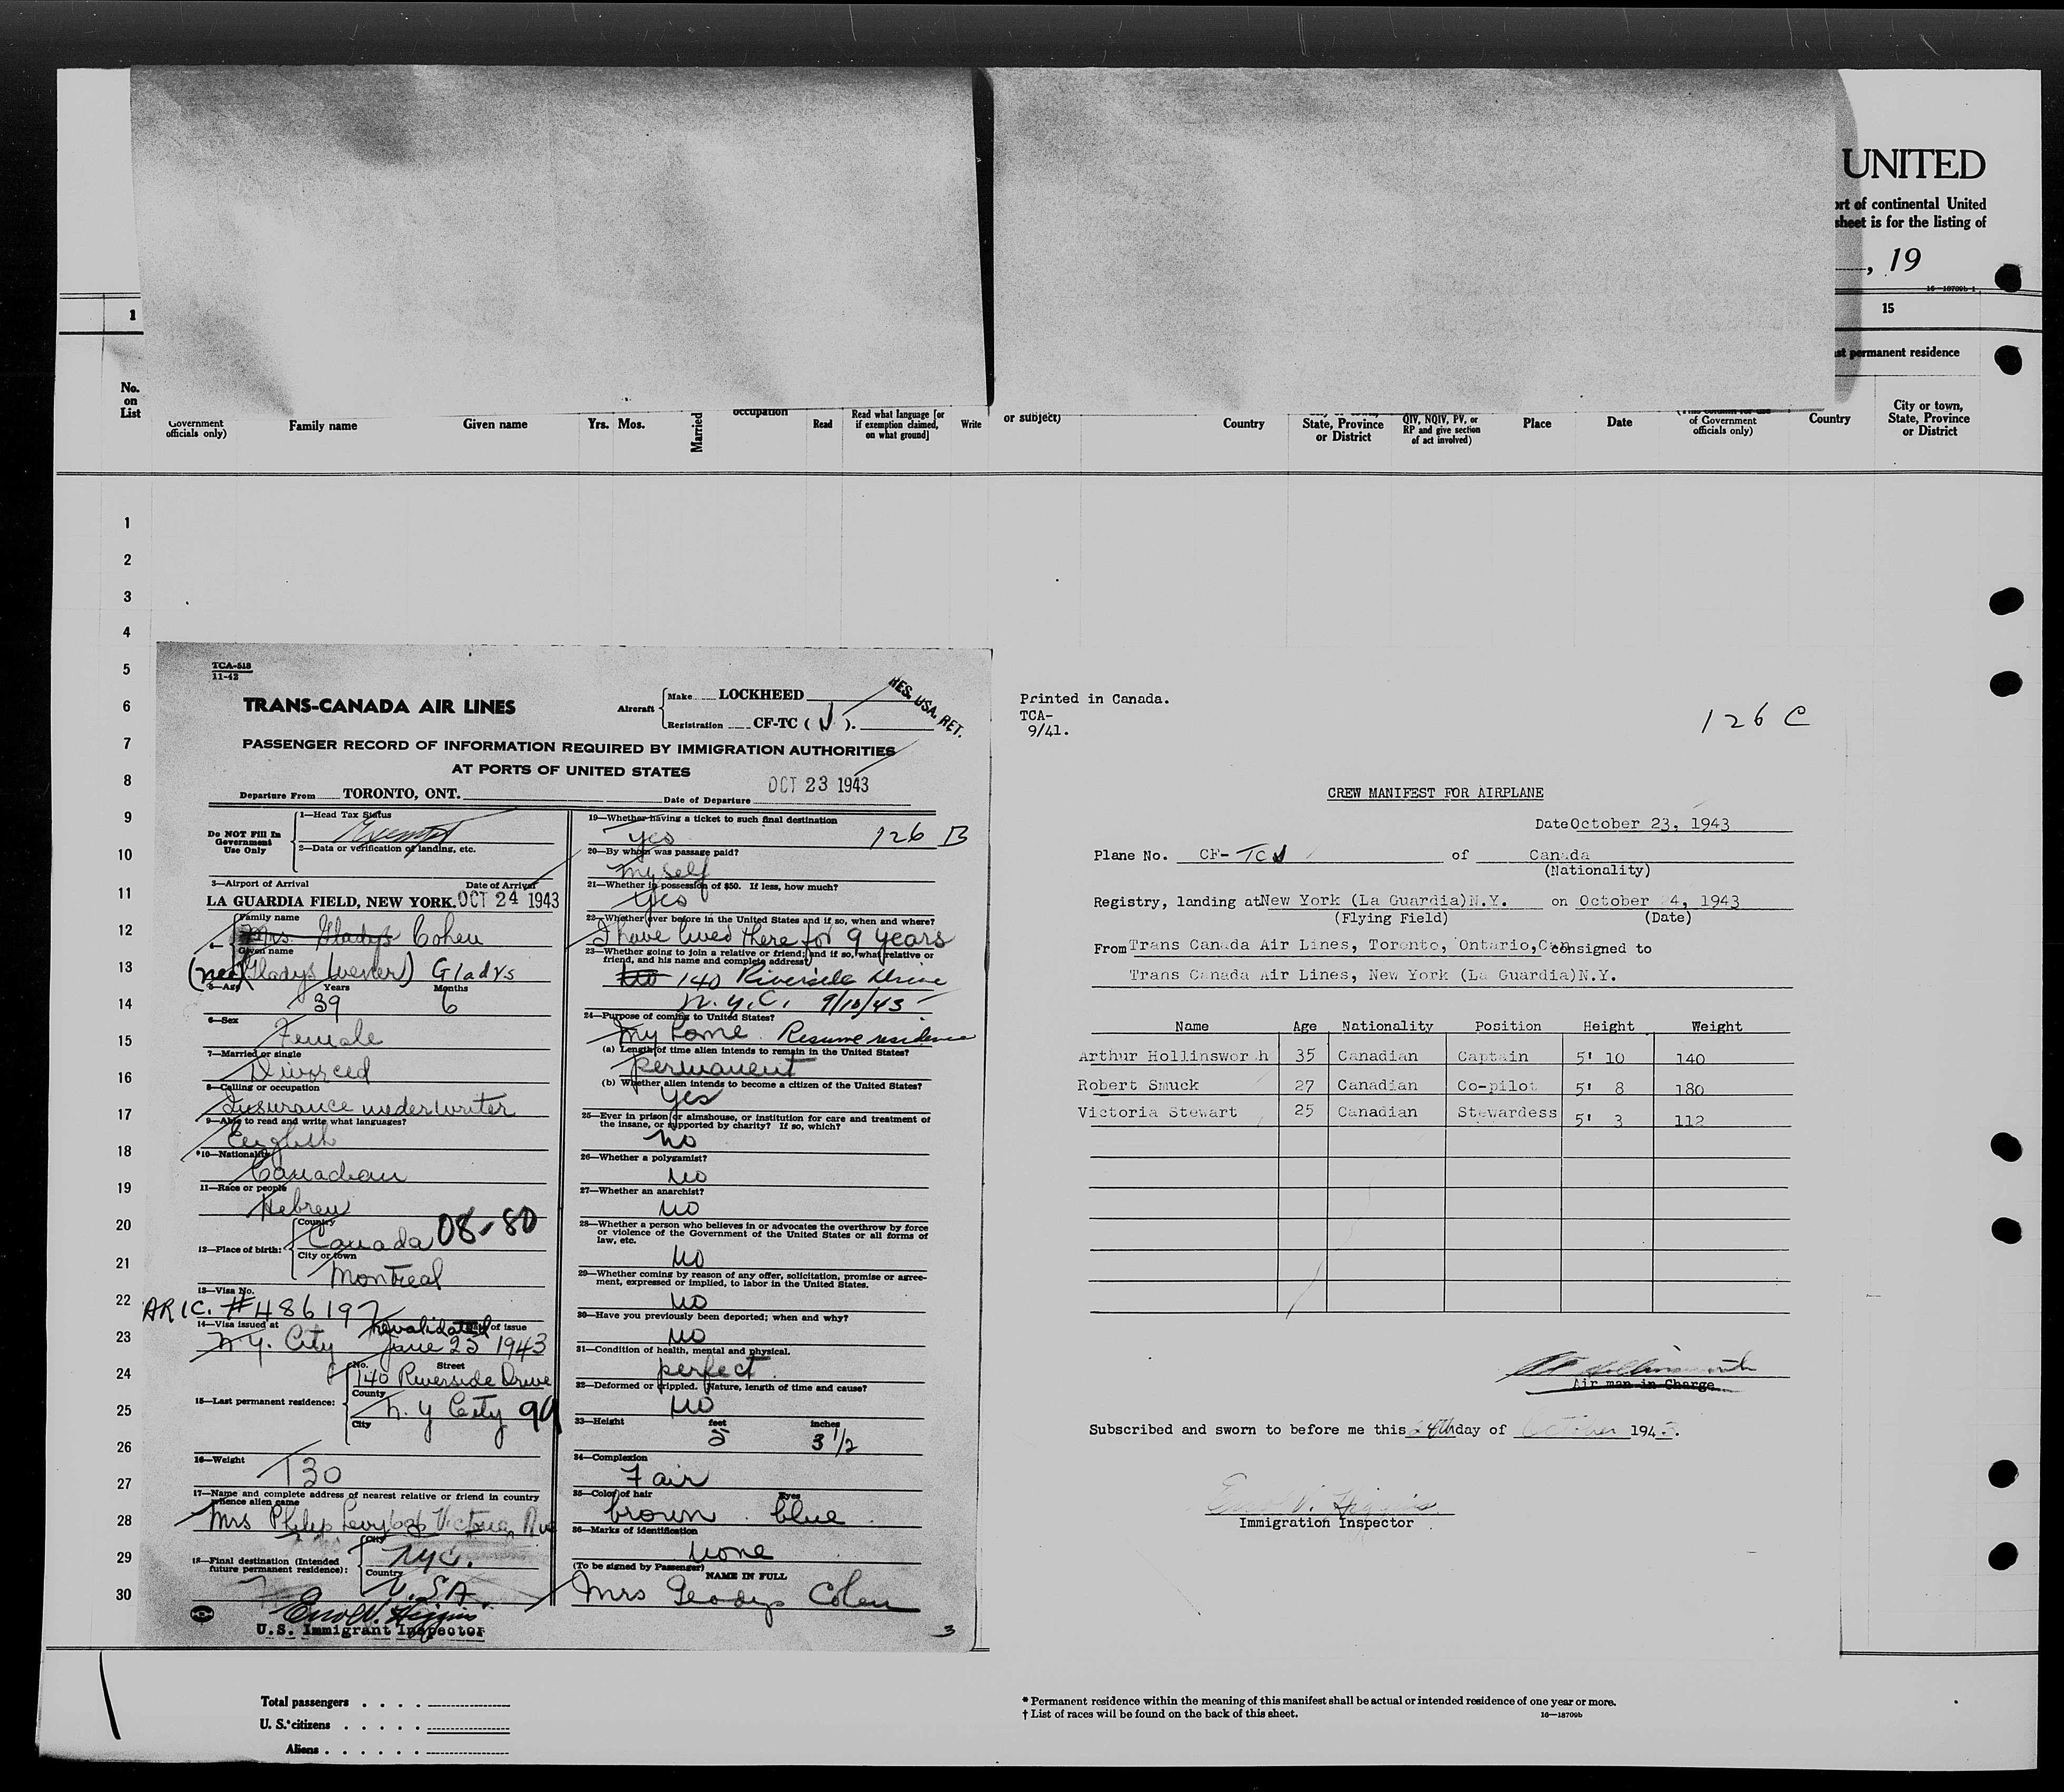 UNITED
ort of continental United
sheet is for the listing of
, 19
16—18709b-1
1
15
ast permanent residence
No.
on
List
Government
officials only)
Family name
Given name
Yrs. Mos.
Married
occupation
Read
Read what language [or
if exemption claimed,
on what ground]
Write
or subject)
Country
State, Province
or District
QIV, NQIV, PV, or
RP and give section
of act involved)
Place
Date
of Government
officials only)
Country
City or town,
State, Province
or District
1
2
3
4
5
6
7
8
9
10
11
12
13
14
15
16
17
18
19
20
21
22
23
24
25
26
27
28
29
30
TCA-518
11-42
TRANS-CANADA AIR LINES
Aircraft
Make LOCKHEED
Registration CF-TC ( J ).
RES. USA. RET.
PASSENGER RECORD OF INFORMATION REQUIRED BY IMMIGRATION AUTHORITIES
AT PORTS OF UNITED STATES
Departure From TORONTO, ONT.
Date of Departure OCT 23 1943
Do NOT Fill In
Government
Use Only
1—Head Tax Status
Exempt
2—Data or verification of landing, etc.
3—Airport of Arrival
Date of Arrival
LA GUARDIA FIELD, NEW YORK. OCT 24 1943
4—
Family name
Mrs. Gladys Cohen
Given name
(nee Gladys Wener) Gladys
5—Age Years Months
39 6
6—Sex
Female
7—Married or single
Divorced
8—Calling or occupation
Insurance underwriter
9—Able to read and write what languages?
English
*10—Nationality
Canadian
11—Race or people
Hebrew
12—Place of birth:
Country
Canada 08-80
City or town
Montreal
13—Visa No.
AR IC. #486197
14—Visa issued at
revalidated of issue
N.Y. City June 25 1943
15—Last permanent residence:
No. Street
140 Riverside Drive
County
N. Y City 99
City
16—Weight
130
17—Name and complete address of nearest relative or friend in country
whence alien came
Mrs Philip Levy Victoria Ave
18—Final destination (Intended
future permanent residence):
City
NYC.
Country
U.S.A.
Errol V. Higgins
U.S. Immigrant Inspector
19—Whether having a ticket to such final destination
yes 126 B
20—By whom was passage paid?
myself
21—Whether in possession of $50. If less, how much?
Yes
22—Whether ever before in the United States and if so, when and where?
I have lived there for 9 years
23—Whether going to join a relative or friend; and if so, what relative or
friend, and his name and complete address?
no 140 Riverside Drive
N.Y.C. 9/10/43
24—Purpose of coming to United States?
My home. Resume residence
(a) Length of time alien intends to remain in the United States?
permanent
(b) Whether alien intends to become a citizen of the United States?
Yes
25—Ever in prison or almshouse, or institution for care and treatment of
the insane, or supported by charity? If so, which?
no
26—Whether a polygamist?
no
27—Whether an anarchist?
no
28—Whether a person who believes in or advocates the overthrow by force
or violence of the Government of the United States or all forms of
law, etc.
no
29—Whether coming by reason of any offer, solicitation, promise or agree-
ment, expressed or implied, to labor in the United States.
no
30—Have you previously been deported; when and why?
no
31—Condition of health, mental and physical.
perfect
32—Deformed or crippled. Nature, length of time and cause?
no
33—Height feet inches
5 3 1/2
34—Complexion
Fair
35—Color of hair Eyes
brown. blue
36—Marks of identification
none
(To be signed by Passenger)
NAME IN FULL
Mrs Gladys Cohen
3
Printed in Canada.
TCA-
9/41.
126 C
CREW MANIFEST FOR AIRPLANE
Date October 23, 1943
Plane No. CF- TCJ of Canada
(Nationality)
Registry, landing at New York (La Guardia)N.Y. on October 24, 1943
(Flying Field) (Date)
From Trans Canada Air Lines, Toronto, Ontario, Can consigned to
Trans Canada Air Lines, New York (La Guardia)N.Y.
Name Age Nationality Position Height Weight
Arthur Hollinsworth 35 Canadian Captain 5' 10 140
Robert Smuck 27 Canadian Co-pilot 5' 8 180
Victoria Stewart 25 Canadian Stewardess 5' 3 112
A Hollinsworth
Air man in Charge
Subscribed and sworn to before me this 24th day of October 1943.
Errol V. Higgins
Immigration Inspector
Total passengers . . . .
U. S. citizens . . . . .
Aliens . . . . . .
* Permanent residence within the meaning of this manifest shall be actual or intended residence of one year or more.
† List of races will be found on the back of this sheet.
16—18709b